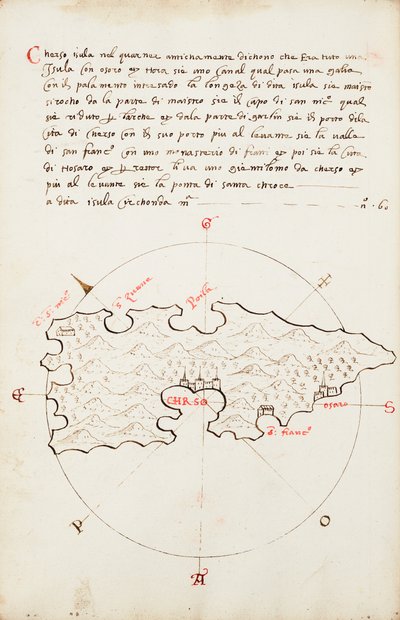 Cherso isula nel quarner antichamente dichono che Era tuto una
Isula con osoro et hora sie uno canal qual pasa una galia
con il palamento intersado la longeza di dita isula sie maistro
sirocho da la parte di maistro sie il capo di san mic° qual
sie riduto p barche et da la parte di garbin sie il porto dila
cita di cherso con il suo porto piu al levante sie la valle
di san franc° con uno monasterio di frati et poi sie la cita
di Hosaro et p
li va uno gientilomo da cherso et
piu al levante sie la ponta di santa chroce
a dita isula circhonda mª n° · 60
G
H
c. s. mic°
Porto
E
CHRSO
S
osaro
S. franc°
P
O
A